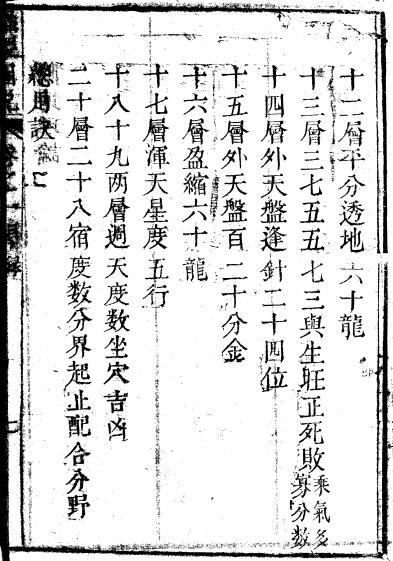 十二層平分透地六十龍
十三層三七五五七三與生旺正死敗乘氣多寡分數
十四層外天盤逢針二十四位
十五層外天盤百二十分金
十六層盈縮六十龍
十七層渾天星度五行
十八十九两層週天度数坐穴吉凶
二十層二十八宿度数分界起止配合分野
總用訣